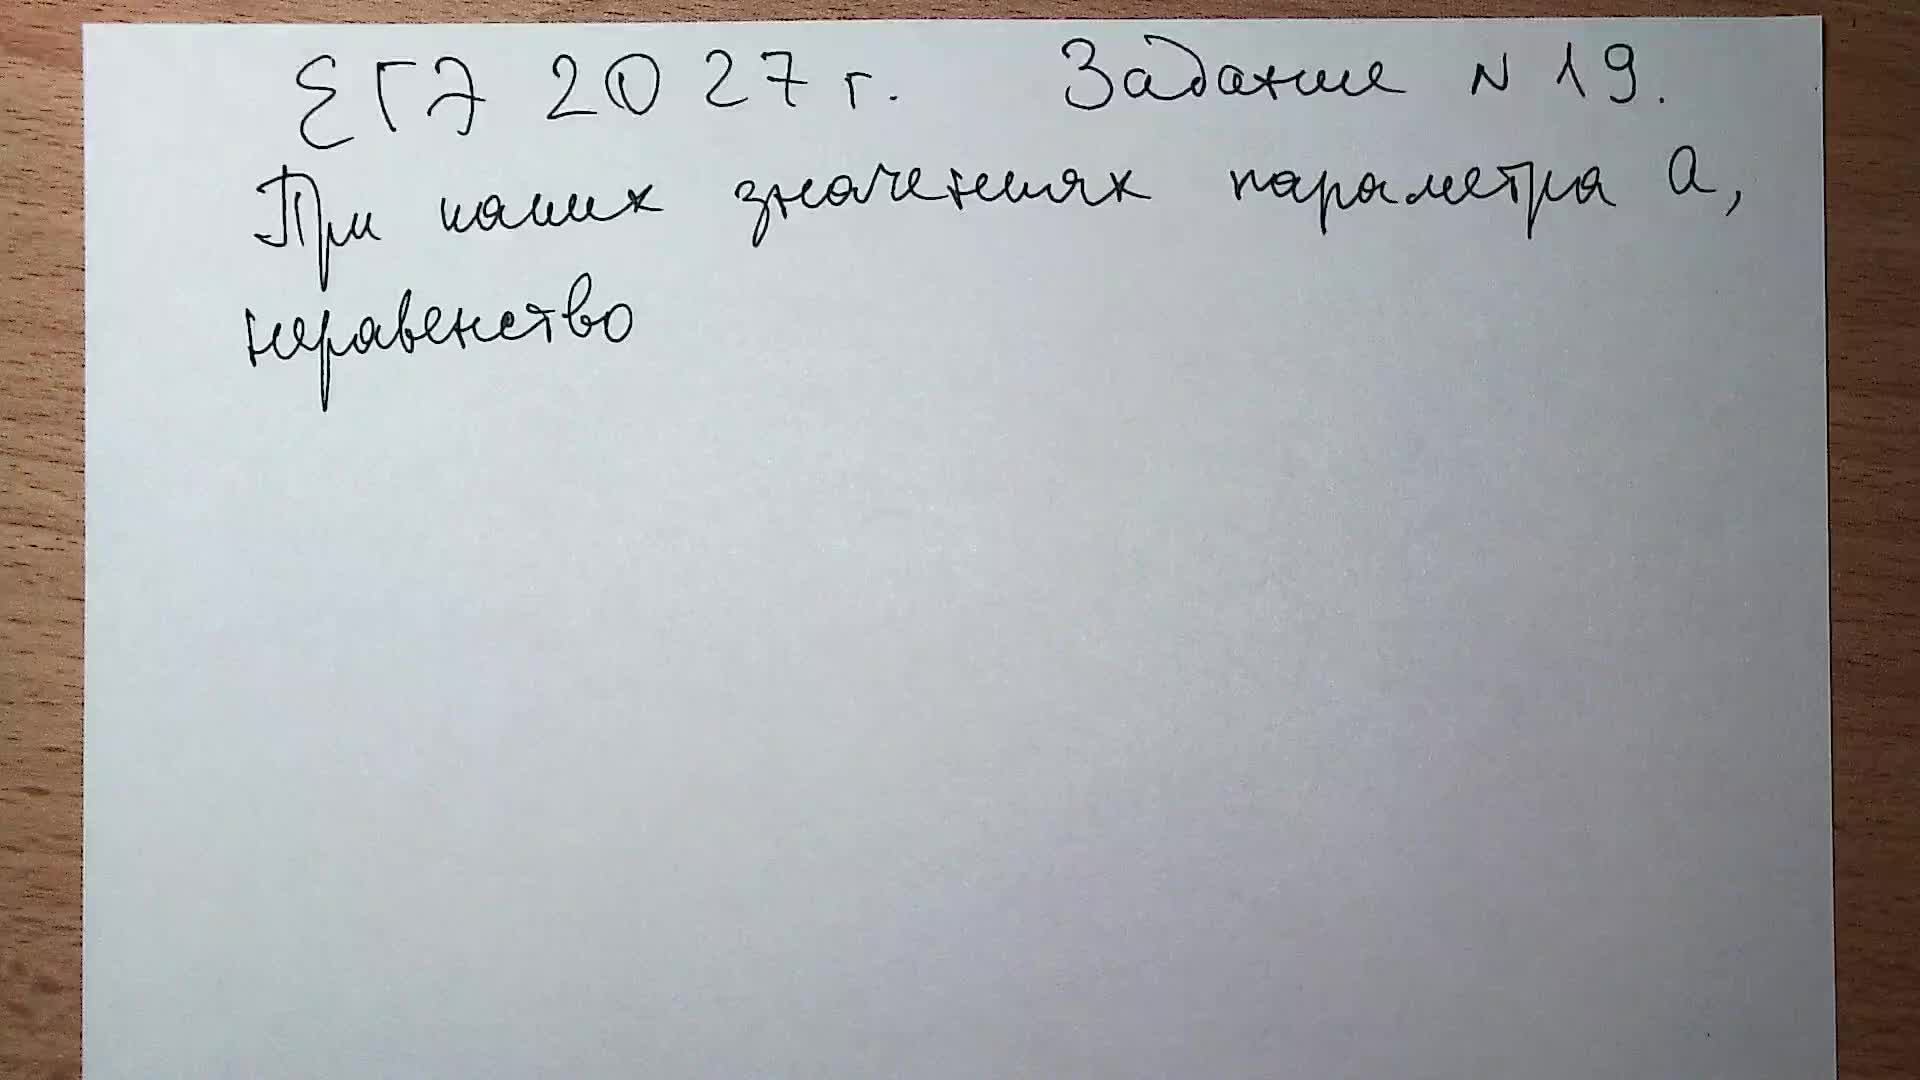 ЕГЭ 2027 г. Задание N 19.
При каких значениях параметра а,
неравенство